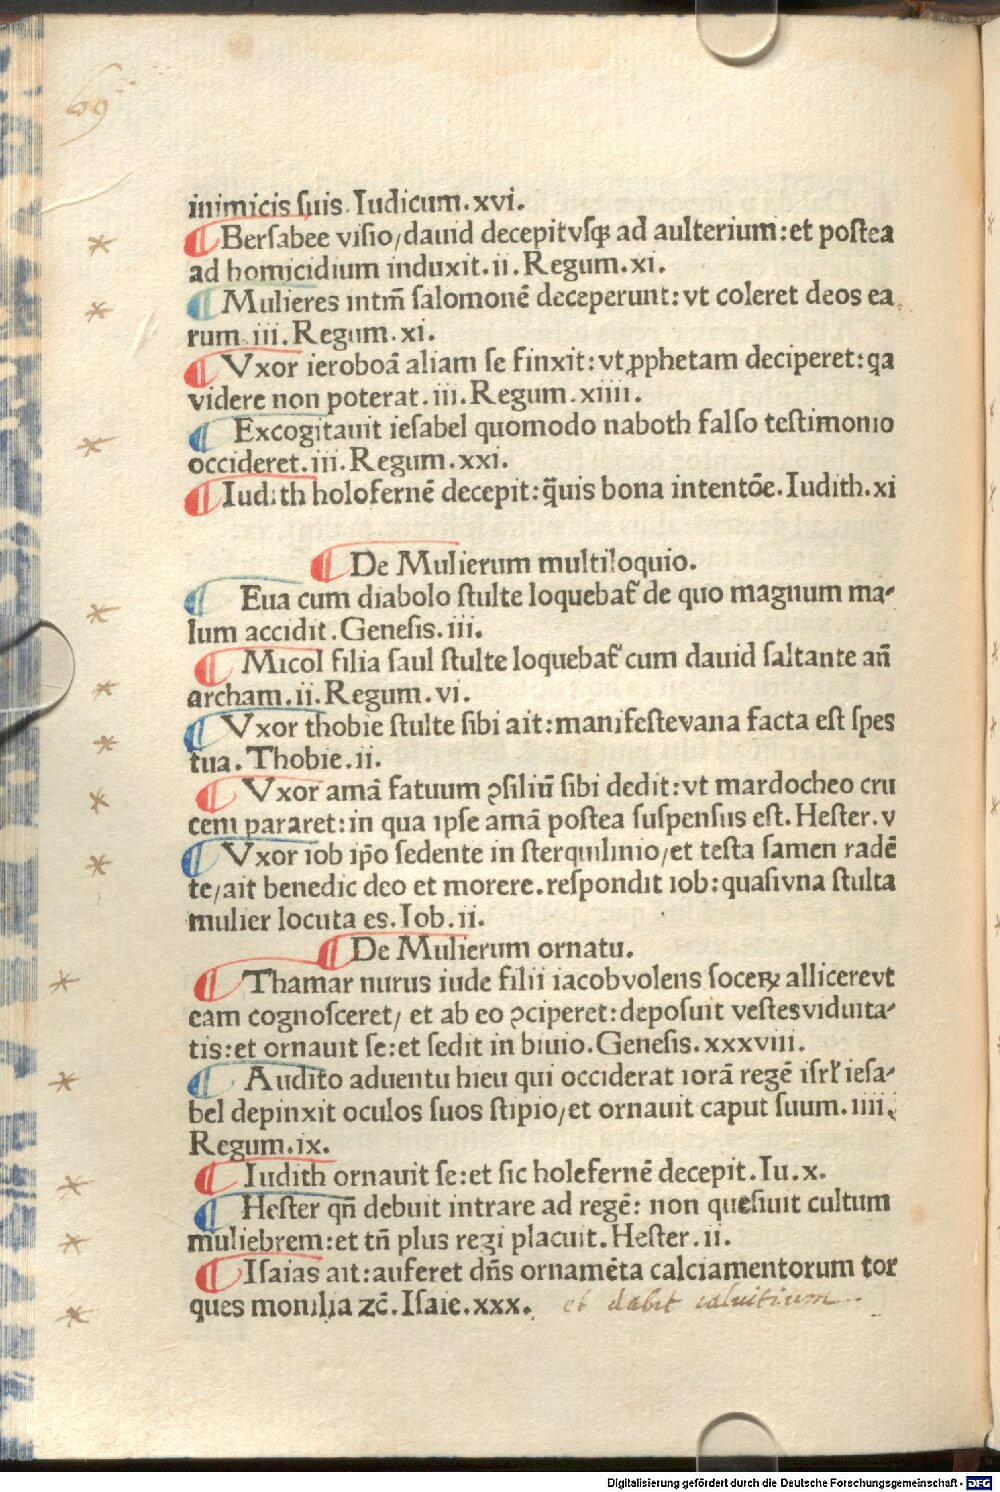 69
inimicis suis. Iudicum. xvi.
¶ Bersabee visio/dauid decepitvsqꝫ ad aulterium: et postea
ad homicidium induxit. ii. Regum. xi.
¶ Mulieres intm̄ salomonē deceperunt: vt coleret deos ea
rum. iii. Regum. xi.
¶ Vxor ieroboā aliam se finxit: vt ꝓphetam deciperet: qa
videre non poterat. iii. Regum. xiiii.
¶ Excogitauit iesabel quomodo naboth falso testimonio
occideret. iii. Regum. xxi.
¶ Iudith holofernē decepit: q̄uis bona intentōe. Iudith. xi
¶ De Mulierum multiloquio.
¶ Eua cum diabolo stulte loquebat᷑ de quo magnum ma-
lum accidit. Genesis. iii.
¶ Micol filia saul stulte loquebat᷑ cum dauid saltante añ
archam. ii. Regum. vi.
¶ Vxor thobie stulte sibi ait: manifestevana facta est spes
tua. Thobie. ii.
¶ Vxor amā fatuum ꝯsiliū sibi dedit: vt mardocheo cru
cem pararet: in qua ipse amā postea suspensus est. Hester. v
¶ Vxor iob ip̄o sedente in sterquilinio/et testa samen radē
te/ait benedic deo et morere. respondit iob: quasivna stulta
mulier locuta es. Iob. ii.
¶ De Mulierum ornatu.
¶ Thamar nurus iude filii iacobvolens soceꝝ allicerevt
eam cognosceret/ et ab eo ꝯciperet: deposuit vestesviduita-
tis: et ornauit se: et sedit in biuio. Genesis. xxxviii.
¶ Audito aduentu hieu qui occiderat iorā regē isrl̄ iesa-
bel depinxit oculos suos stipio/et ornauit caput suum. iiii.
Regum. ix.
¶ Iudith ornauit se: et sic holefernē decepit. Iu. x.
¶ Hester qñ debuit intrare ad regē: non quesiuit cultum
muliebrem: et tñ plus regi placuit. Hester. ii.
¶ Isaias ait: auferet dñs ornamēta calciamentorum tor
ques monilia ⁊c̄. Isaie. xxx. et dabit caluitium
Digitalisierung gefördert durch die Deutsche Forschungsgemeinschaft - DFG